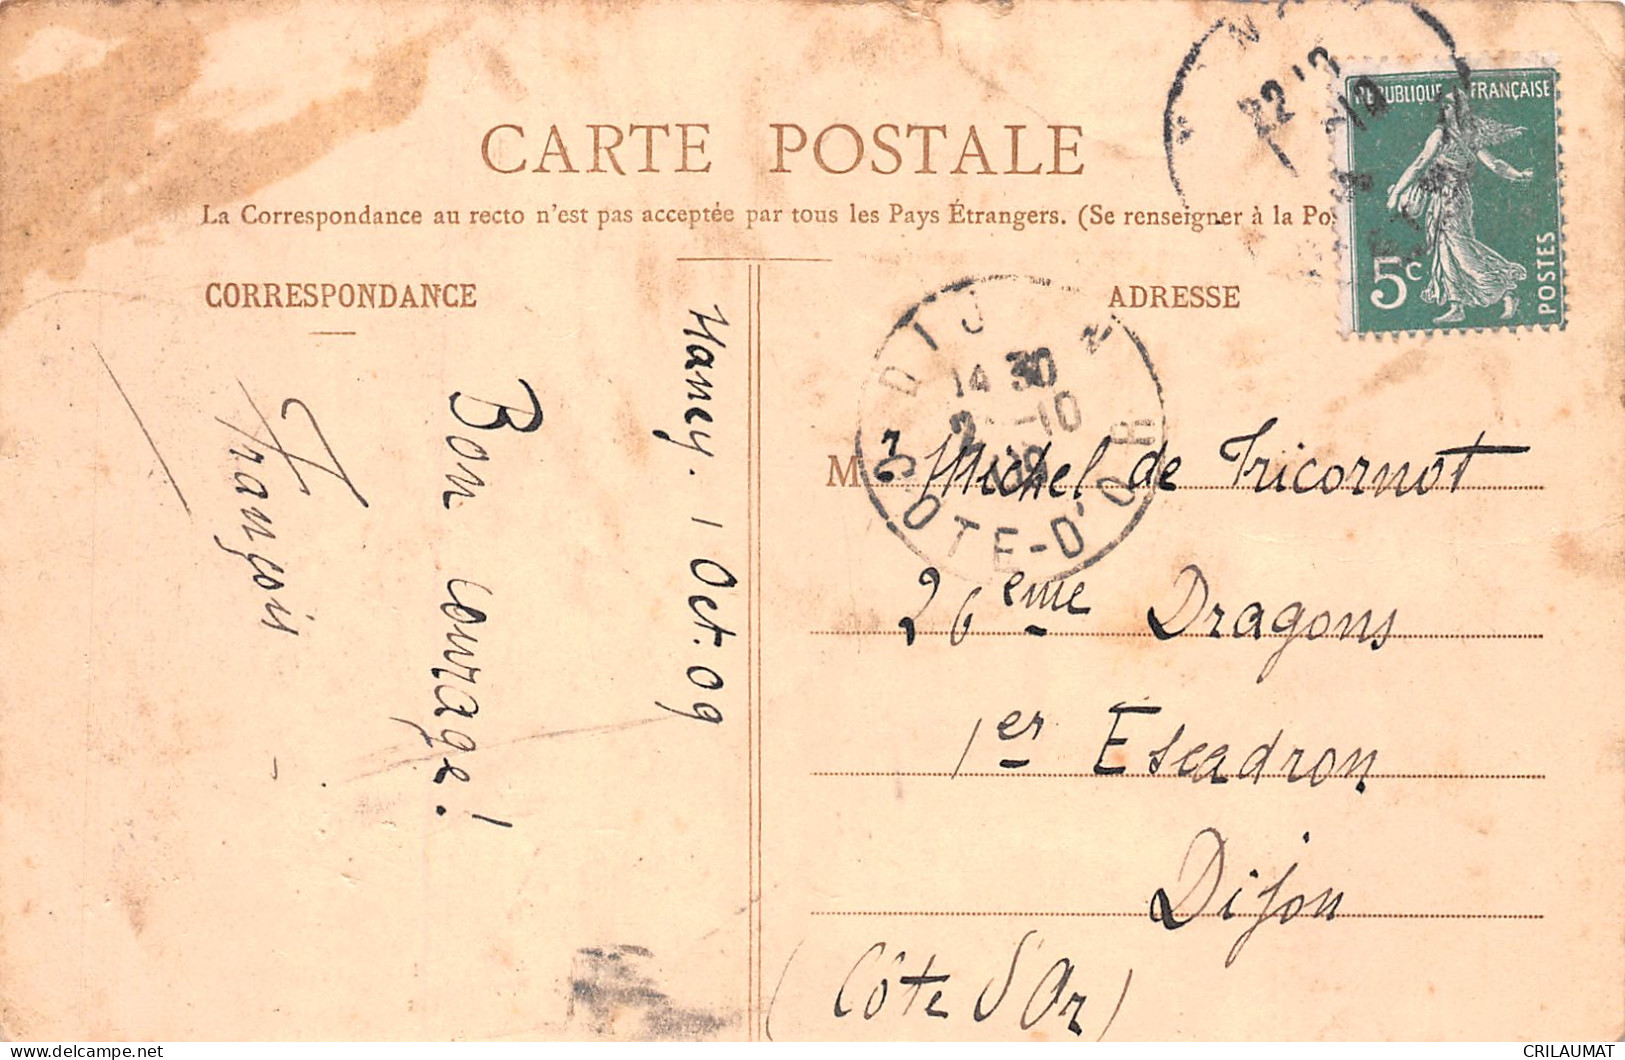 CARTE POSTALE
La Correspondance au recto n'est pas acceptée par tous les Pays Étrangers. (Se renseigner à la Po
CORRESPONDANCE
Nancy. 1 Oct. 09
Bon courage!
François
ADRESSE
REPUBLIQUE FRANÇAISE
5c
POSTES
22
DIJ N
14 30
2 -10
COTE-D'OR
Mr Michel de Tricornot
26eme Dragons
1er Escadron
Dijon
(Côte d'Or)
CRILAUMAT